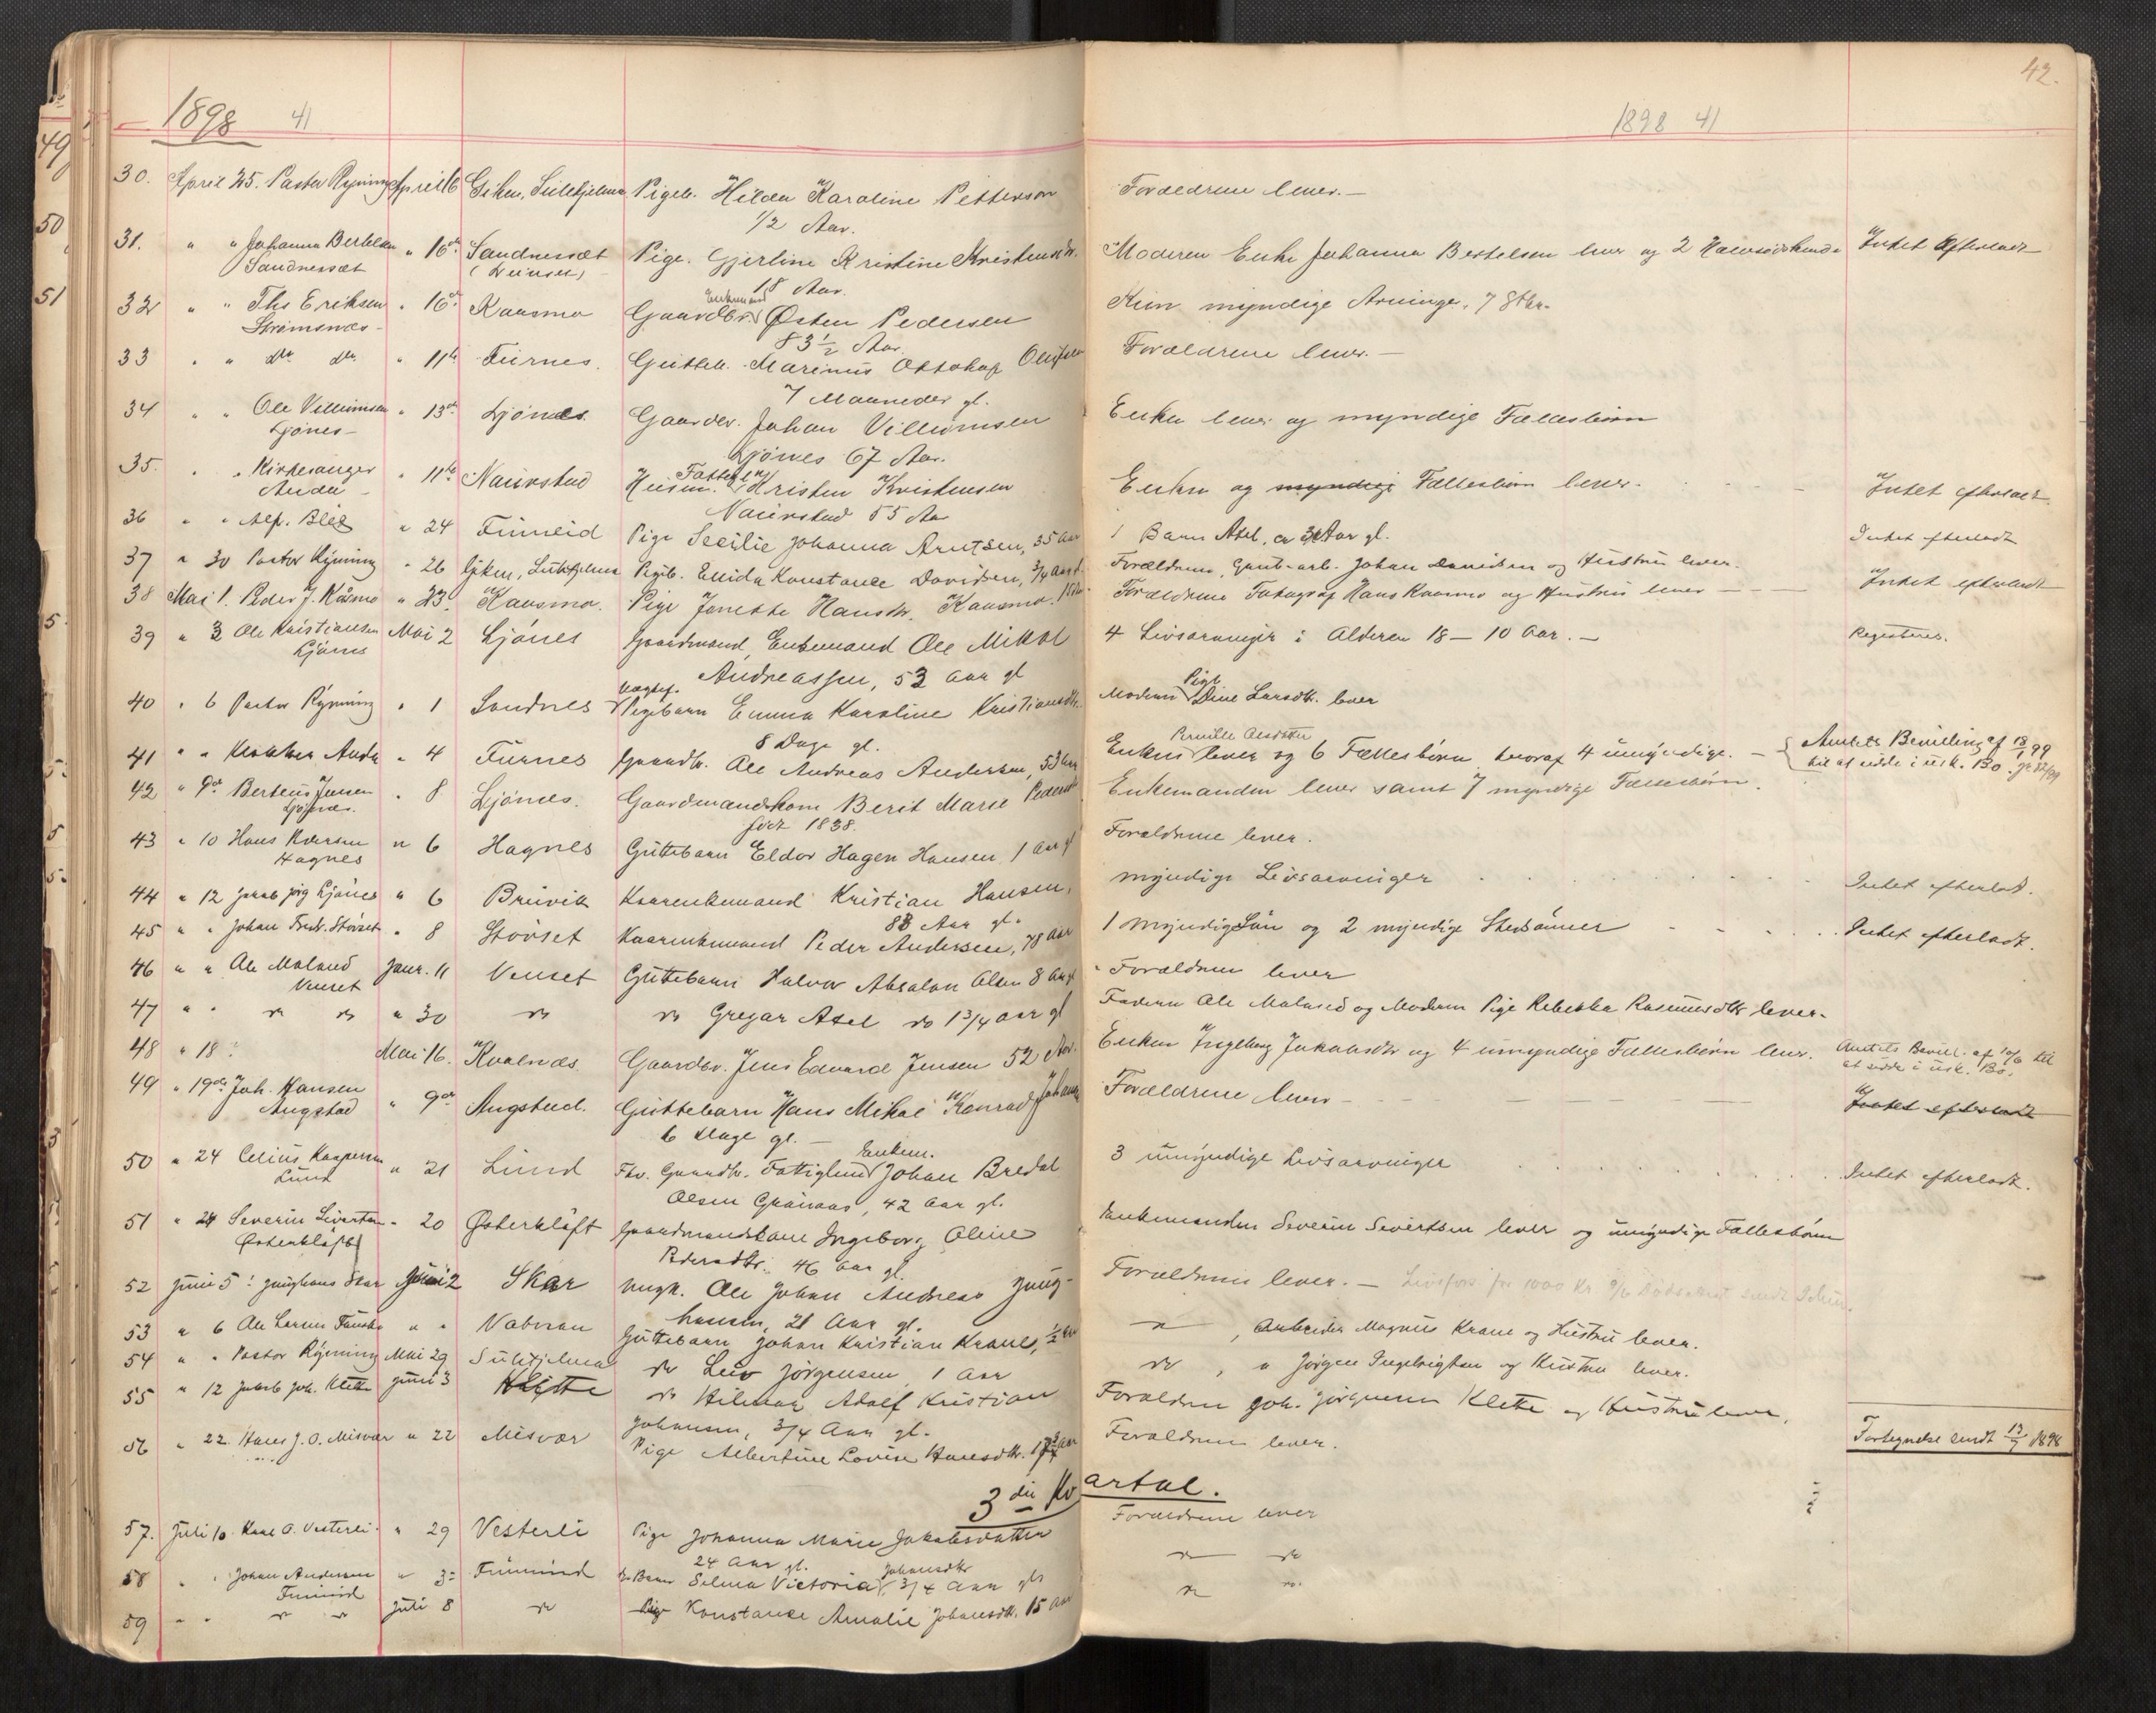 42.
1898 41
1898 41
30. April 25. Pastor Ryning April 16 Giken, Sulitjelma Pigeb. Hilda Karoline Pettersen Forældrene lever. —
1/2 Aar.
31. " " Johanna Bertelsen " 16de Sandnesset Pige. Gjerline Kristine Kristensdtr. Moderen Enke Johanna Bertelsen lever og 2 Halvsødskende Intet Efterladt
Sandnesset 18 Aar.
32 " " Ths Eriksen " 16de Kaasmo Gaardbr. Enkemand Østen Pedersen Kun myndige Arvinge. 7 Stkr.
Strømsnæs — 83 1/2 Aar.
33 " " do. do. " 11te Furnes. Gutteb. Marinus Ottohaf Forældrene lever. —
7 Maaneder gl.
34 " " Ole Villumsen " 13de Ljönes. Gaardbr. Johan Villumsen Enken lever og myndige Fællesbørn
Ljönes — Ljönes 67 Aar.
35. " " Kirkesanger " 11te Naurstad Husm. Fattigl. Kristen Kristensen Enken og myndige Fællesbörn lever. Intet efterladt
Anda — Naurstad 55 Aar
36 " " Alf. Blix " 24 Finneid Pige Secilie Johanna Arntsen, 35 Aar 1 Barn Axel, ca 3 Aar gl. Intet efterladt
37 " 30 Pastor Rÿning " 26 Giken, Sulitjelma Pigeb. Ellida Konstance Davidsen, 3/4 Aar Forældrene, Grub-arb. Johan Davidsen og Hustru lever.
38 Mai 1. Peder J. Kåsmo " 23. Kaasmo. Pige Janette Hansdtr. Kaasmo. Forældrene Fotograf Hans Kaasmo og Hustru lever — — Intet efterladt
39 " 3 Ole Kristiansen Mai 2 Ljönes Gaardmand, Enkemand Ole Mikal 4 Livsarvinger i Alderen 18 — 10 Aar. — Registreres.
Ljönes Andreassen, 53 Aar gl
40 " 6 Pastor Rÿning " 1 Sandnes Uægtef. Pigebarn Emma Karoline Kristiansdtr. Moderen Pige Dine Larsdtr. lever
8 Dage gl.
41 " " Klokker Anda " 4 Furnes Gaardbr. Ole Andreas Andersen, 53 Aar Enken Pernille Olsdatter lever og 6 Fællesbörn hvoraf 4 umÿndige. — Amtets Bevilling af 18/1 99
til at sidde i usk. Bo.
42 " 9de Berteus Jensen " 8 Ljönes. Gaardmandskone Berit Marie Pedersdtr Enkemanden lever samt 7 myndige Fællesbörn.
Ljönes. født 1838.
43 " 10 Hans Iversen " 6 Hagnes Guttebarn Eldor Hagen Hansen 1 Aar gl Forældrene lever.
Hagnes
44 " 12 Jakob Jörg Ljönes " 6 Breivik Kaarenkemand Kristian Hansen, myndige Livsarvinger Intet efterladt.
88 Aar gl.
45 " " Johan Fredr. Stövset " 8 Stövset Kaarenkemand Peder Andersen, 78 Aar 1 myndig Sön og 2 myndige Stedsönner Intet efterladt.
46 " " Ole Moland Januar. 11 Venset Guttebarn Halvor Absalon Olsen 8 Aar gl Forældrene lever
Venset
47 " " do do " 30 do do Gregar Axel do 1 3/4 Aar gl Faderen Ole Moland og Moderen Pige Rebekka Rasmusdtr lever.
48 " 18. Mai 16. Kvalnæs Gaardbr. Jens Edvard Jensen 52 Aar. Enken Ingeborg Jakobsdtr og 4 umyndige Fællesbörn lever. Amtets Bevill. af 10/6 til
at sidde i usk. Bo.
49 " 19de Joh. Hansen " 9de Angstad. Guttebarn Hans Mikal Konrad Johansen Forældrene lever — Intet efterladt
Angstad 6 Dage gl. —
50 " 24 Celius Kaspersen " 21 Lund Fhv. Gaardbr. Fattiglem Enkem. Johan Bredal 3 umÿndige Livsarvinger Intet efterladt.
Lund Olsen Grönaas, 42 Aar gl.
51 " 24 Severin Sivertsen " 20 Østerkløft Gaardmandskone Ingeborg Oline Enkemanden Severin Sivertsen lever og umÿndige Fællesbörn
Østerkløft Pedersdtr. 46 Aar gl.
52 Juni 5. Junghans Skar Juni 2 Skar ungk. Ole Johan Andreas Jung- Forældrene lever. — Livsfors. for 1000 Kr.
hansen, 21 Aar gl.
53 " 6 Ole Larsen Fauske " " Valnan Guttebarn Johan Kristian Krane, 1/2 Aar " , Arbeider Magnus Krane og Hustru lever.
54 " " Pastor Rÿning Mai 29 Sulitjelma do Leiv Jörgensen 1 Aar do , " Jörgen Ingebrigtsen og Hustru lever.
55 " 12 Jakob Joh. Klette Juni 3 Klette do Hilmar Adolf Kristian Forældrene Joh. Jörgensen Klette og Hustru lever.
Johansen, 3/4 Aar gl.
56 " 22. Hans J. O. Misvær " 22 Misvær Pige Albertine Lovise Hansdtr. 17 3/4 Aar Forældrene lever. Fortegnelse sendt 12/7 1898
3die Kvartal.
57. Juli 10. Karl O. Vesterli. " 29 Vesterli Pige Johanna Marie Jakobsdatter Forældrene lever
24 Aar gl.
58 " " Johan Andersen " 3 Finneid do Barn Selma Victoria Johansdtr 3/4 Aar gl. do do
Finneid
59 " " do do Juli 8 do Pige Konstance Amalie Johansdtr. 15 Aar do do
49
50
51